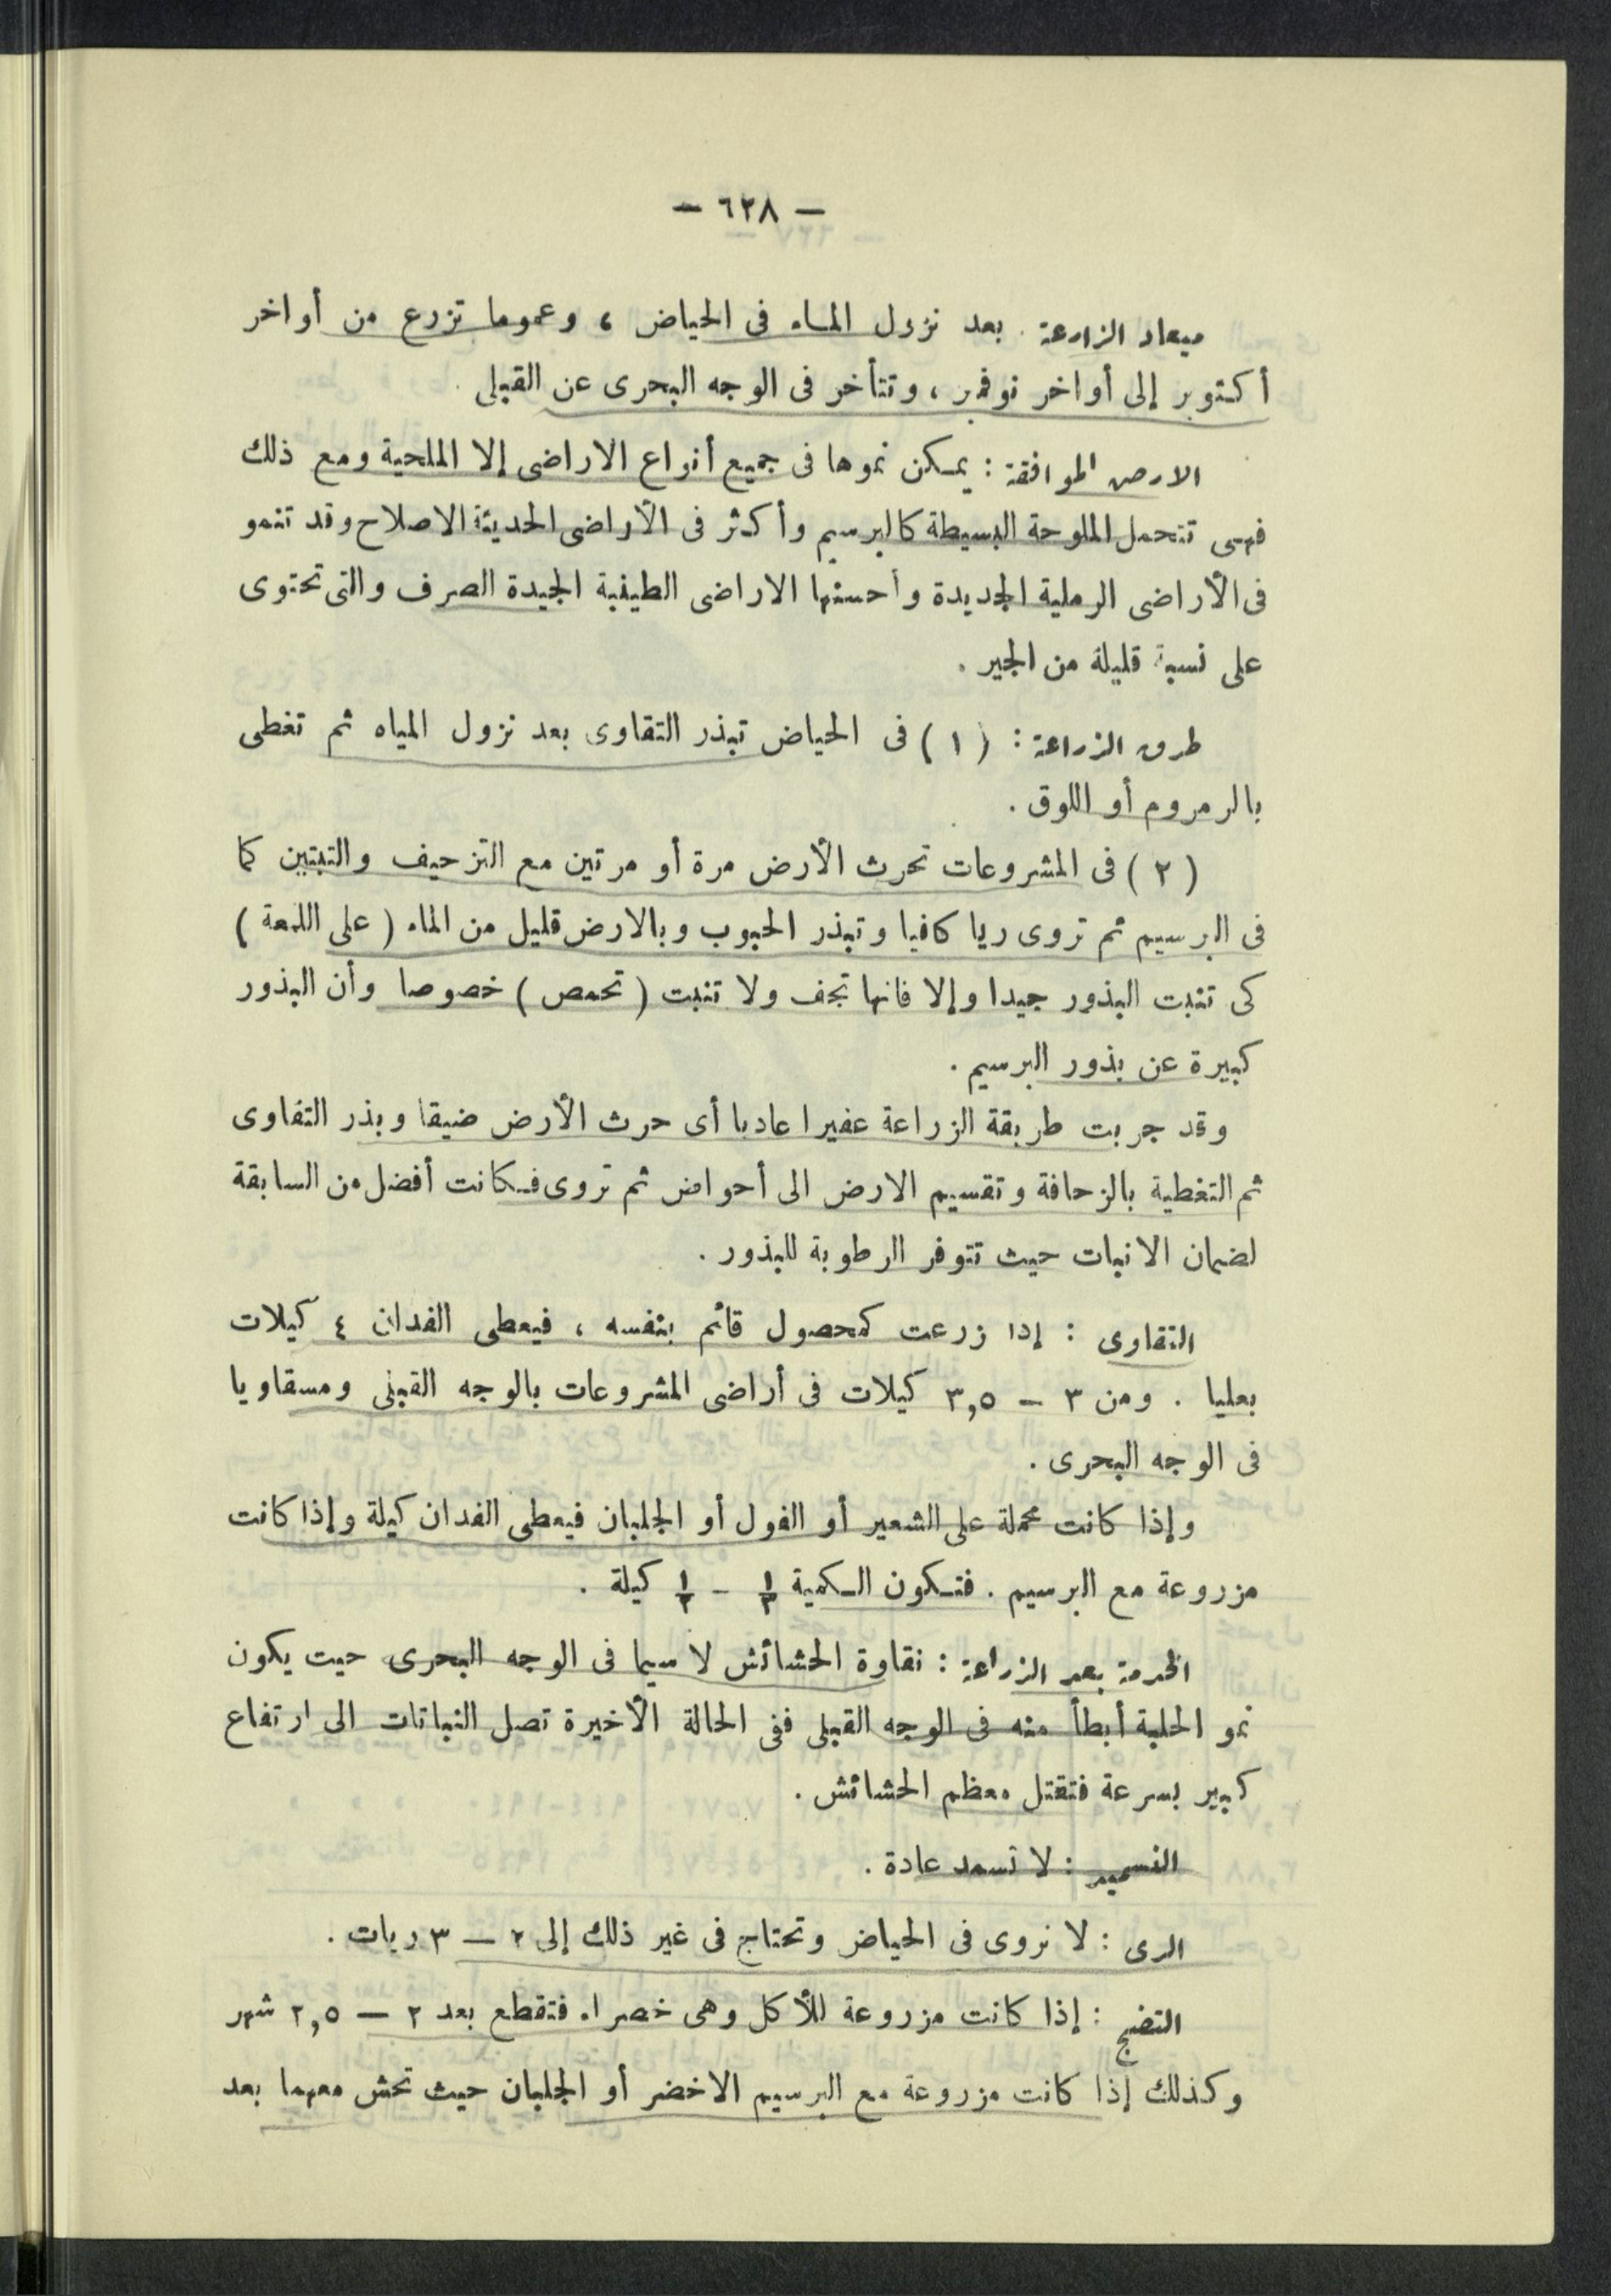 — ٦٢٨ —
ميعاد الزراعة . بعد نزول الماء فى الحياض ، وعموما تزرع من أواخر
أكتوبر إلى أواخر نوفمبر ، وتتأخر فى الوجه البحرى عن القبلى .
الارض الموافقة : يمكن نموها فى جميع أنواع الاراضى إلا الملحية ومع ذلك
فهى تتحمل الملوحة البسيطة كالبرسيم وأكثر فى الأراضى الحديثة الاصلاح وقد تنمو
فى الأراضى الرملية الجديدة وأحسنها الاراضى الطينية الجيدة الصرف والتى تحتوى
على نسبة قليلة من الجير .
طرق الزراعة : ( ١ ) فى الحياض تبذر التقاوى بعد نزول المياه ثم تغطى
بالرمروم أو اللوق .
( ٢ ) فى المشروعات تحرث الأرض مرة أو مرتين مع التزحيف والتبتين كما
فى البرسيم ثم تروى ريا كافيا وتبذر الحبوب وبالارض قليل من الماء ( على اللمعة )
كى تنبت البذور جيدا وإلا فانها تجف ولا تنبت ( تحمص ) خصوصا وأن البذور
كبيرة عن بذور البرسيم .
وقد جربت طريقة الزراعة عفيرا عاديا أى حرث الأرض ضيقا وبذر التقاوى
ثم التغطية بالزحافة وتقسيم الارض الى أحواض ثم تروى فكانت أفضل من السابقة
لضمان الانبات حيث تتوفر الرطوبة للبذور .
التقاوى : إذا زرعت كمحصول قائم بنفسه ، فيعطى الفدان ٤ كيلات
بعليا . ومن ٣ — ٣,٥ كيلات فى أراضى المشروعات بالوجه القبلى ومسقاويا
فى الوجه البحرى .
وإذا كانت محملة على الشعير أو الفول أو الجلبان فيعطى الفدان كيلة وإذا كانت
مزروعة مع البرسيم . فتكون الكمية ١/٣ — ١/٢ كيلة .
الخدمة بعد الزراعة : نقاوة الحشائش لا سيما فى الوجه البحرى حيت يكون
نمو الحلبة أبطأ منه فى الوجه القبلى ففى الحالة الأخيرة تصل النباتات الى ارتفاع
كبير بسرعة فتقتل معظم الحشائش .
التسميد : لا تسمد عادة .
الرى : لا تروى فى الحياض وتحتاج فى غير ذلك إلى ٢ — ٣ ريات .
النضج : إذا كانت مزروعة للأكل وهى خضراء فتقطع بعد ٢ — ٢,٥ شهر
وكذلك إذا كانت مزروعة مع البرسيم الاخضر أو الجلبان حيث تحش معهما بعد